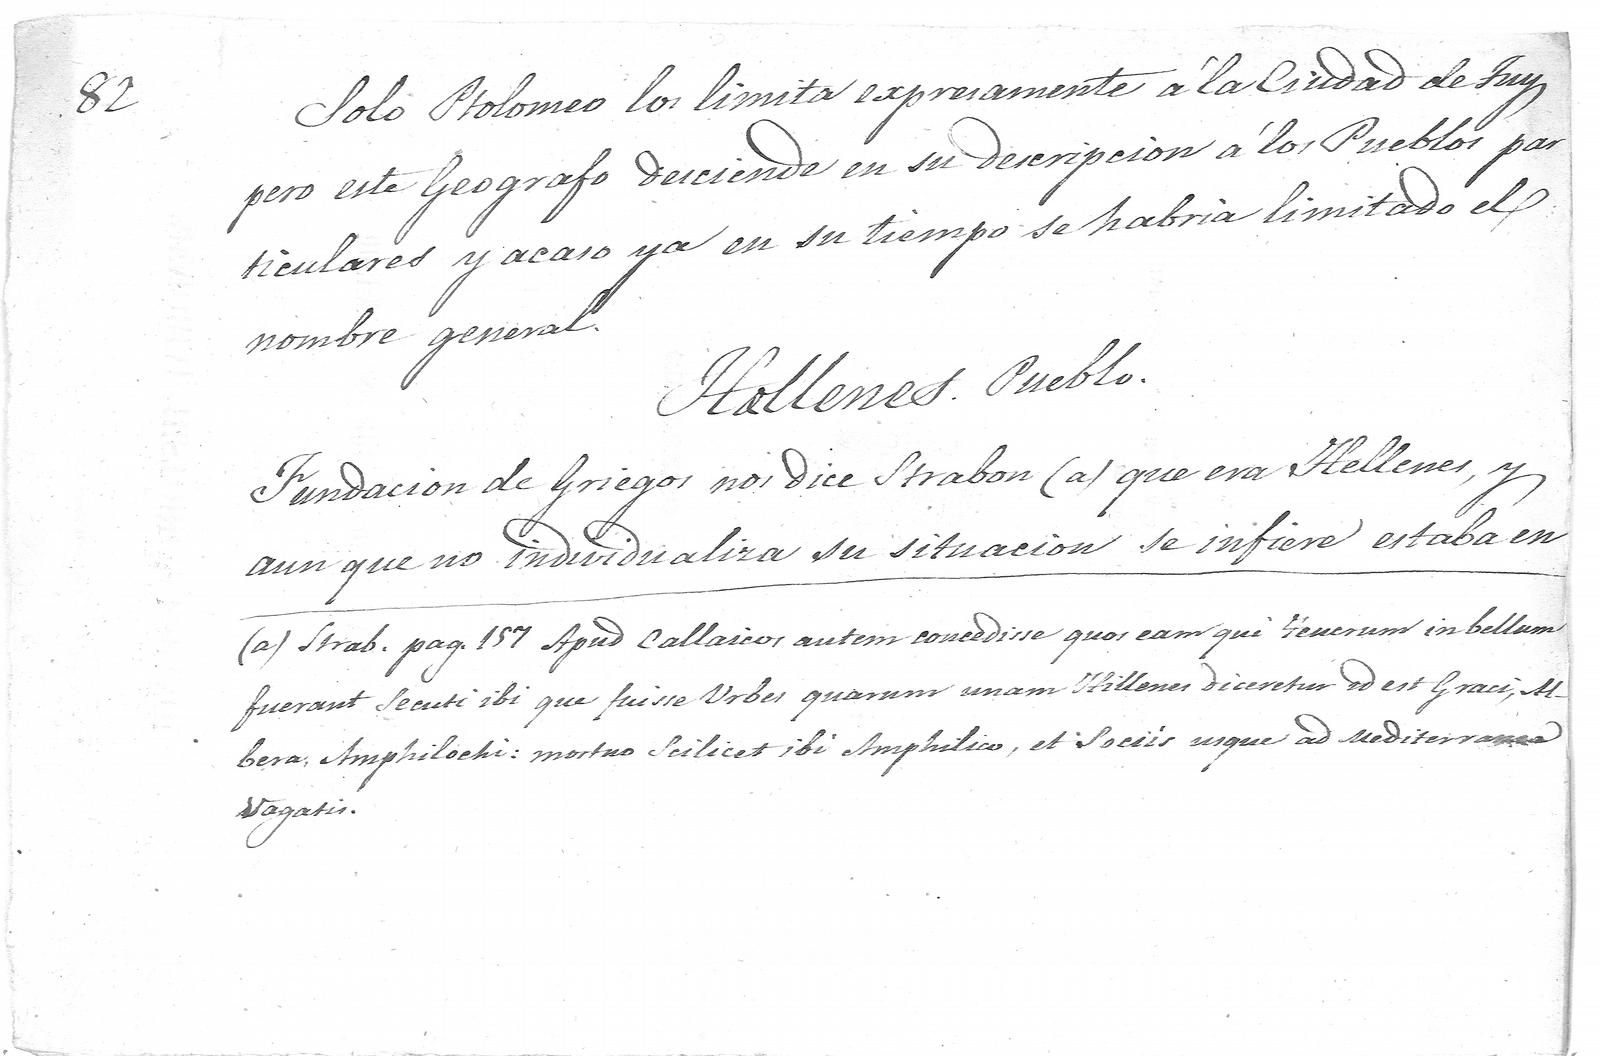 82
Solo Ptolomeo los limita expresamente á la Ciudad de Tuy
pero este Geografo desciende en su descripcion á los Pueblos par
ticulares y acaso ya en su tiempo se habria limitado el
nombre general.
Hellenes. Pueblo.
Fundacion de Griegos nos dice Strabon (a) que era Hellenes, y
aun que no individualiza su situacion se infiere estaba en
(a) Strab. pag. 157 Apud Callaicos autem concedisse quos eam qui Teucrum in bellum
fuerant Secuti ibi que fuisse Urbes quarum unam Hillenes diceretur id est Graci, Al-
bera, Amphilochi: mortuo Scilicet ibi Amphilico, et Sociis usque ad Mediterranea
Vagatis.